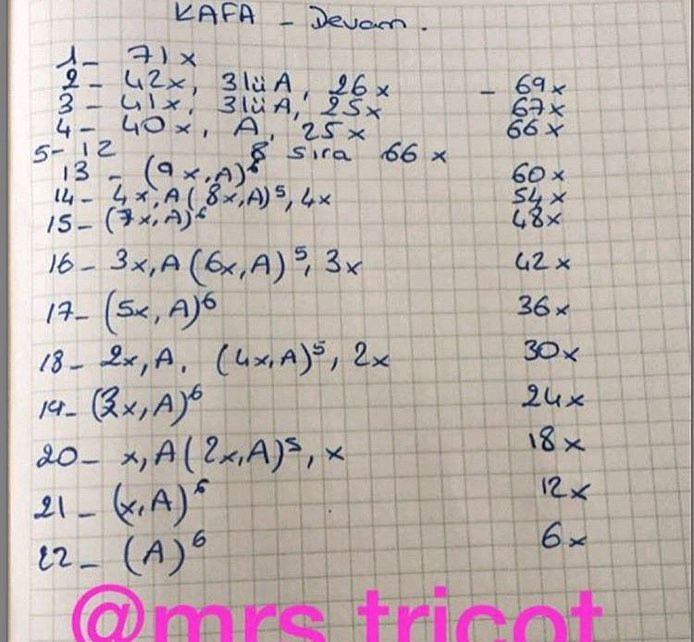 KAFA - Devam.
1- 71x
2- 42x, 3lüA, 26x - 69x
3- 41x, 3lüA, 25x 67x
4- 40x, A, 25x 66x
5-12 8 sira 66x
13 - (9x, A)⁶ 60x
14- 4x, A (8x, A)⁵, 4x 54x
15- (7x, A)⁶ 48x
16- 3x, A (6x, A)⁵, 3x 42x
17- (5x, A)⁶ 36x
18- 2x, A, (4x, A)⁵, 2x 30x
19- (3x, A)⁶ 24x
20- x, A (2x, A)⁵, x 18x
21- (x, A)⁶ 12x
22- (A)⁶ 6x
@mrs.tricot